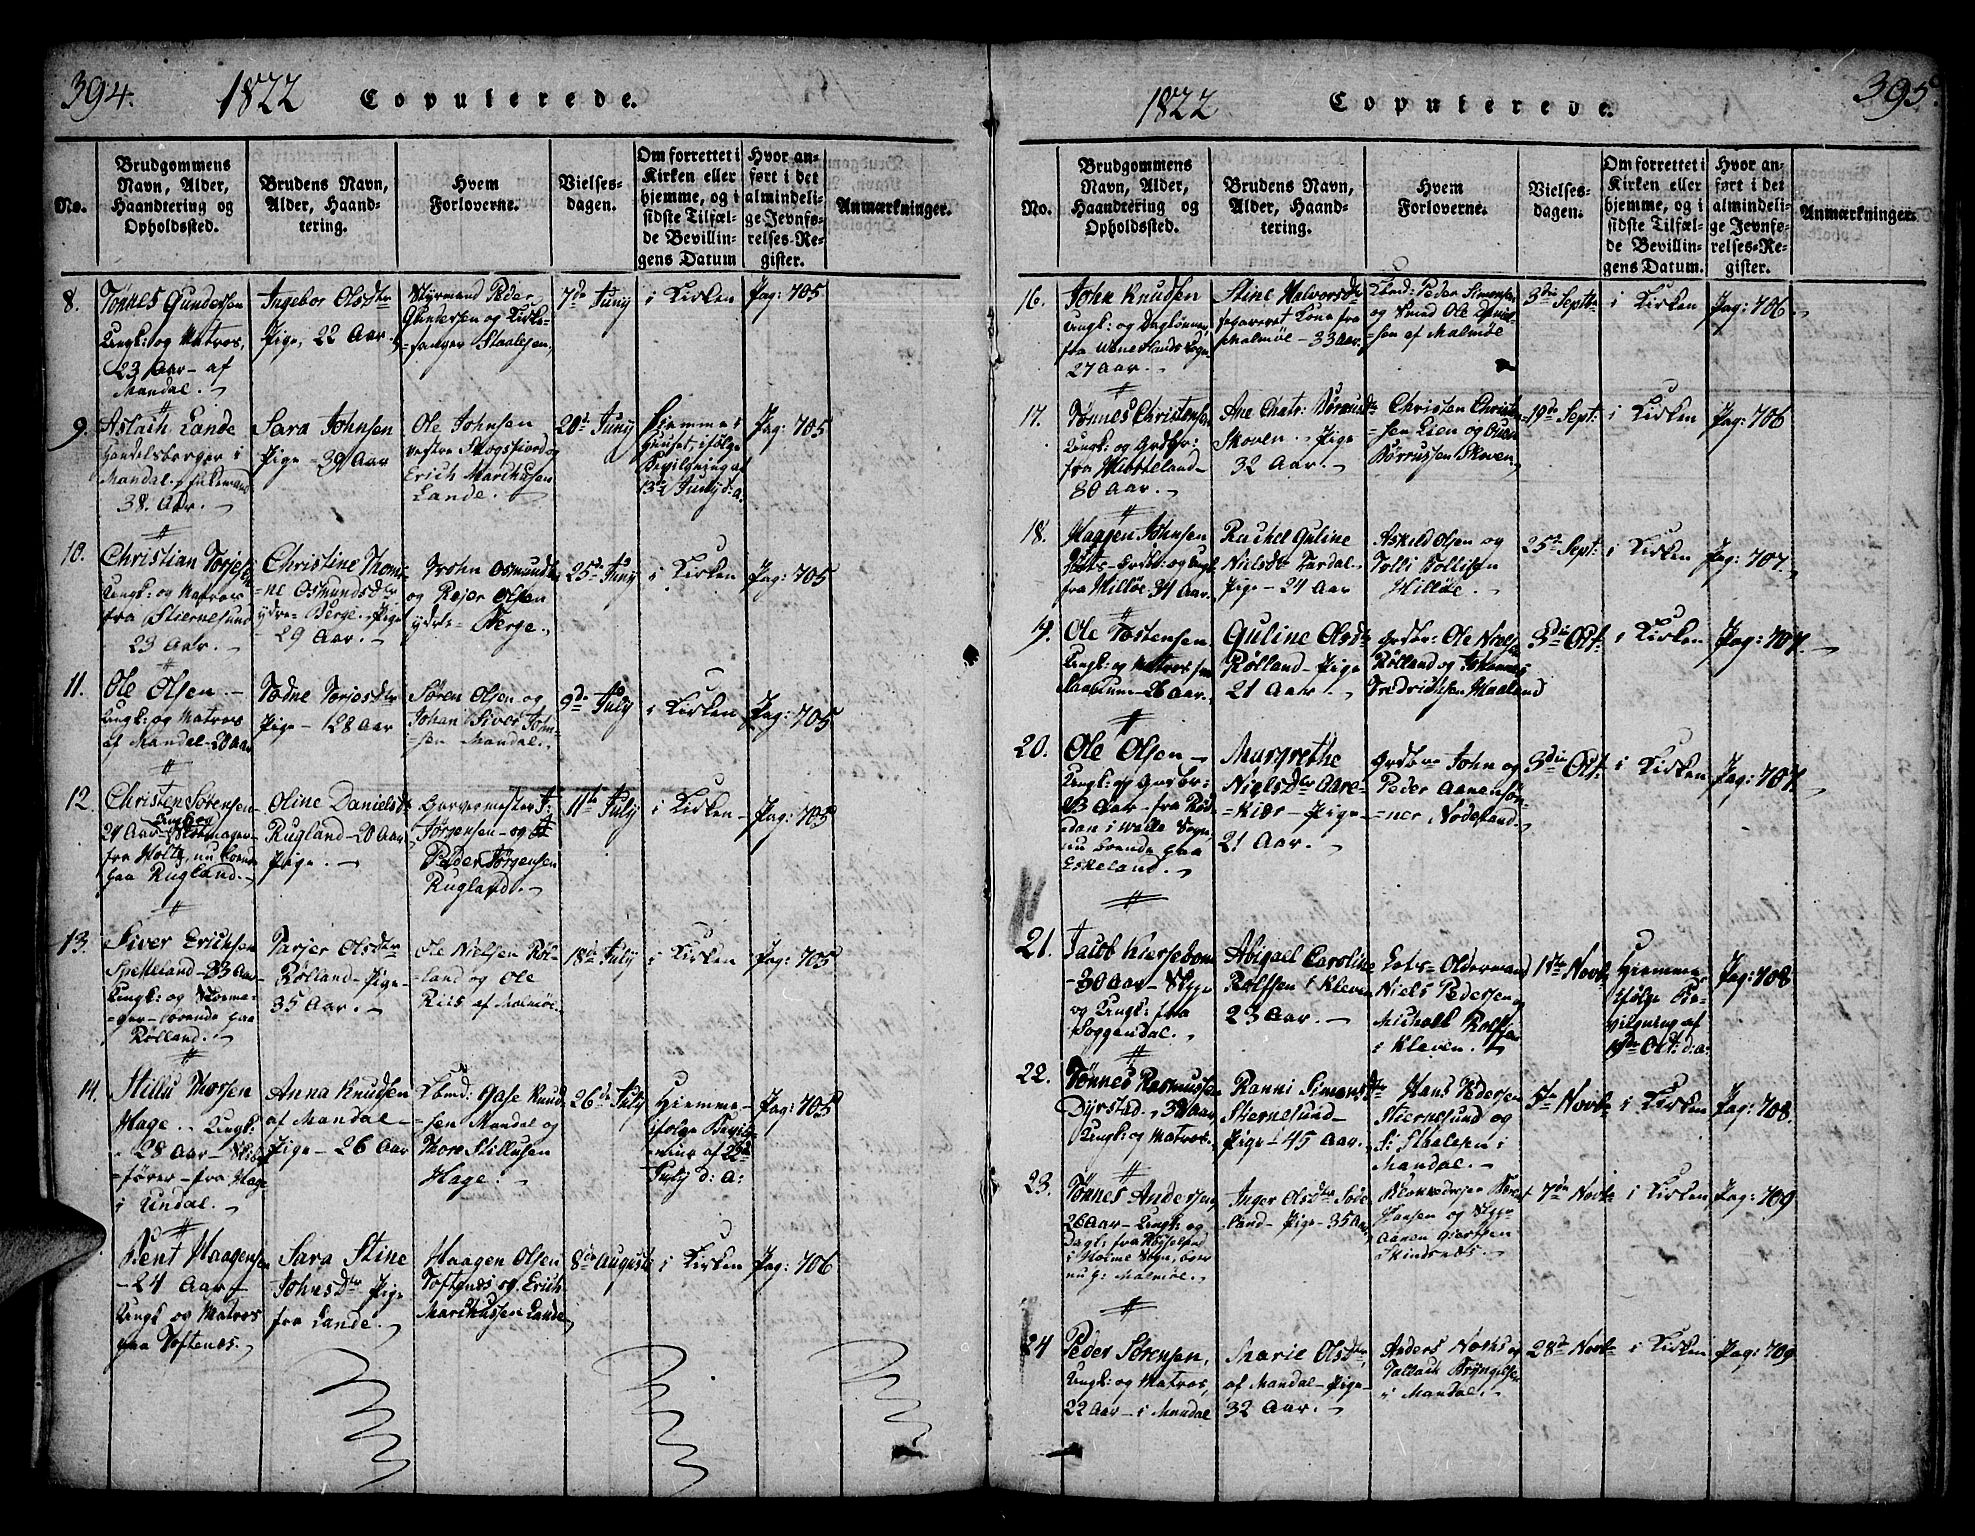 394.
1822
Copulerede.
No.
Brudgommens
Navn, Alder,
Haandtering og
Opholdssted.
Brudens Navn,
Alder, Haand-
tering.
Hvem
Forloverne.
Vielses-
dagen.
Om forrettet i
Kirken eller
hjemme, og i
sidste Tilfæl-
de Bevillin-
gens Datum
Hvor an-
ført i det
almindeli-
ge Jevnfø-
relses-Re-
gister.
Anmærkninger.
8.
Tønnes Gundersen
Ungk: og Matros,
23 Aar - af
Mandal.
Ingebor Olsdtr
Pige, 22 Aar
Styrmand Peder
Guntersen og Kirke-
sanger Staalesen,
7de Juny
i Kirken
Pag: 705
9.
Aslach Lande
Handelsborger i
Mandal
38. Aar.
Sara Johnsen
Pige - 39 Aar
Ole Johnsen
vestre Skogsfiord og
Erich Marchusen
Lande.
20de Juny
Hiemme i
Huuset, ifølge
Bevilgning af
13de Juny d: a.
Pag: 705
10.
Christian Torjesen
Ungk: og Matros
fra Stiernesund
23 Aar.
Christine Thom-
ne Osmundsdtr
ydre Berge, Pige
- 29 Aar.
Trohn Osmunds
og Rejer Olsen
ydre Berge.
25de Juny
i Kirken
Pag: 705
11.
Ole Olsen
Ungk: og Matros
af Mandal - 20 Aar
Tødne Torjesdtr
Pige - 28 Aar
Søren Olsen og
Johan Siver John-
sen Mandal.
9de July
i Kirken
Pag: 705
12.
Christen Sørensen
Ungk og
24 Aar - Skomager
fra Holte, nu boende
paa Rugland.
Oline Danielsdtr
Rugland - 20 Aar
Pige.
Garvermester J:
Jørgensen - og
Peder Jørgensen
Rugland.
11te July
i Kirken
Pag: 705
13.
Siver Erichsen
Spetteland - 33 Aar
Ungk: og Skoma-
ger - boende paa
Rølland.
Tarjer Olsdtr
Rølland - Pige
35 Aar.
Ole Nielsen Røl-
land og Ole
Riis af Malmøe.
18de July
i Kirken
Pag: 705
14.
Stillu Thorsen
Hage. Ungk:
28 Aar - Skib-
fører - fra Hage
i Undal.
Anna Knudsen
af Mandal -
Pige - 26 Aar
Lbmd: Gase Knud-
sen Mandal og
Thore Stillusen
Hage.
26de July
Hiemme -
ifølge Bevilg-
ning af 22de
July d: a:
Pag: 705
Bent Haagensen
- 24 Aar -
Ungk og Matros
paa Toftenes.
Sara Stine
Johnsdtr Pige
fra Lande.
Haagen Olsen
Toftenes og Erich
Marchussen Lande
8de August
i Kirken
Pag: 706
1822
Copulerede.
395.
No.
Brudgommens
Navn, Alder,
Haandtering og
Opholdssted.
Brudens Navn,
Alder, Haand-
tering.
Hvem
Forloverne.
Vielses-
dagen.
Om forrettet i
Kirken eller
hjemme, og i
sidste Tilfæl-
de Bevillin-
gens Datum.
Hvor an-
ført i det
almindeli-
ge Jevnfø-
relses-Re-
gister.
Anmærkninger.
16.
John Knudsen
Ungk: og Daglønner
fra Sogn,
27 Aar.
Stine Halvorsdtr
separeret Kone fra
Malmøe - 33 Aar.
Lbmd: Peder Simonsen
og Smed Ole Daniel-
sen af Malmøe
3die Septbr
i Kirken
Pag: 706
17.
Tønnes Christensen
Ungk: og Grdbr:
fra
30 Aar.
Ane Chatr: Børrusdtr
Skoven. Pige
32 Aar.
Christen Christen-
sen Lien og Ouen
Børrussen Skoven
19de Sept:
i Kirken
Pag: 706
18.
Haagen Johnsen
fra Hilløe 34 Aar.
Rachel Guline
Nielsdtr Tardal
Pige - 24 Aar
Askild Olsen og
Tolli Tollisen
Hilløe.
25de Sept:
i Kirken
Pag: 707
19.
Ole Tostensen
Ungk: og Matros fra
26 Aar.
Guline Olsdtr
Rølland - Pige
21 Aar.
Grdbr: Ole Nielsen
Rølland og Johannes
Fredrichsen Maaland
3die Oct.
i Kirken
Pag: 707.
20.
Ole Olsen -
Ungk: og Grdbr:
23 Aar - fra
dan i Sogn,
nu boende paa
Eskeland.
Margrethe
Nielsdtr Aare-
kier - Pige
21 Aar.
Grdbr John og
Peder Aanensøn-
ner Nodeland.
3die Oct.
i Kirken
Pag: 707.
21.
Jacob Kierseboom
- 30 Aar - Skipr
og Ungk: fra
Soggendal.
Abigael Caroline
Rolfsen i Kleven
23 Aar.
Lots- Olderman
Niels Pedersen og
Michael Rolfsen
i Kleven.
1ste Novbr
Hiemme
ifølge Be-
vilgning af
19de Oct: d:a:
Pag: 708
22.
Tønnes Rasmussen
Dyrstad, 32 Aar,
Ungk: og Matros.
Ranni Simonsdtr
Stiernesund -
Pige - 45 Aar.
Hans Pedersen
Stiernesund og
S: Stalesen i
Mandal.
5te Novbr
i Kirken
Pag: 708.
23.
Tønnes Andersen
26 Aar - Ungk: og
Dagl: fra
i Holme Sogn, boen
nu p: Malmøe.
Inger Olsdtr Søde-
land - Pige - 35 Aar
Blokkedrejer
Hansen og Skipr
Aanen Giertsen
Skindsnæs.
7de Novbr
i Kirken
Pag: 709
24
Peder Sørensen,
Ungk: og Matros,
22 Aar - i Mandal
Marie Olsdtr
af Mandal - Pige
32 Aar.
Anders Nochs og
Tallach Bryngelsen
i Mandal.
28de Novbr
i Kirken
Pag: 709